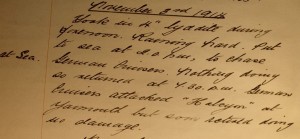 November 2nd 1914
Took in 4" Lyddite during
forenoon. Running Guard. Put
at Sea. to sea at 2.0 p.m. to chase
German Cruisers. Nothing doing
so returned at 4.30 a.m. German
Cruisers attacked "Halcyon" at
Yarmouth but soon retired doing
no damage.